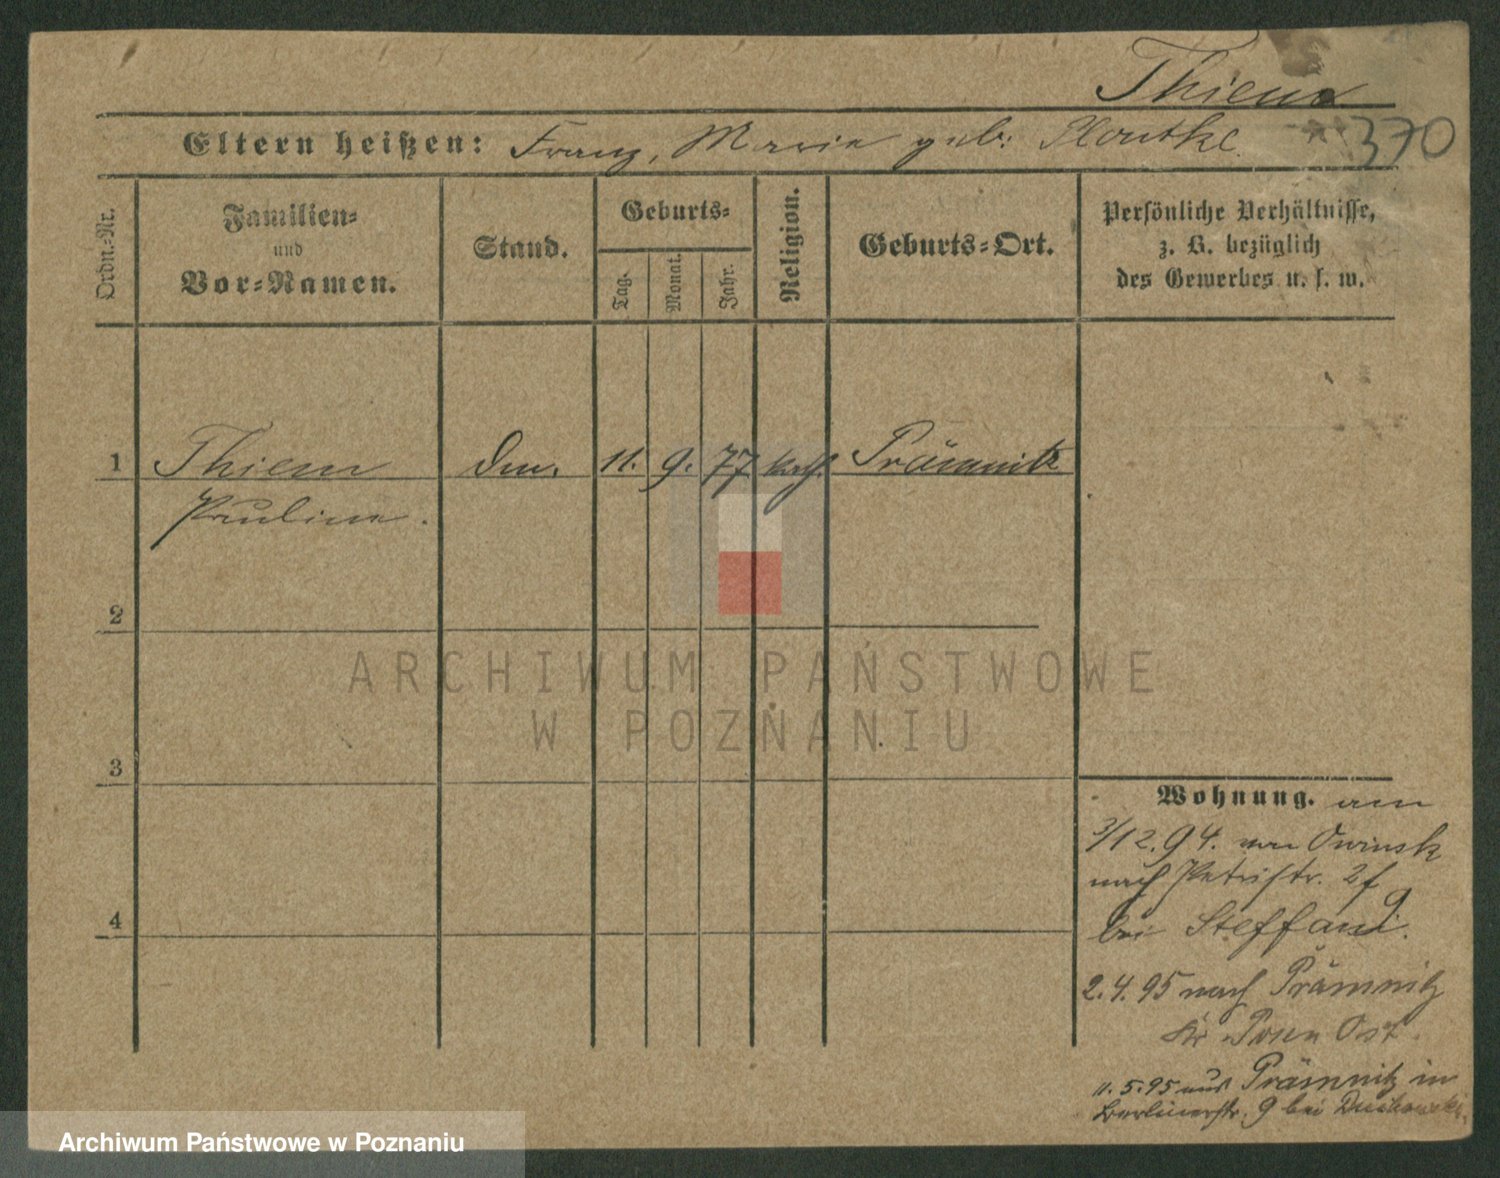 Thiem
Eltern heißen: Franz, Marie geb: Skoutke.
370
Ordn.-Nr.
Familien-
und
Vor-Namen.
Stand.
Geburts-
Tag.
Monat.
Jahr.
Religion.
Geburts-Ort.
Persönliche Verhältnisse,
z. B. bezüglich
des Gewerbes u. s. w.
1 Thiem 11. 9. 77 kath. Prämnitz
Pauline.
2
3
4
Wohnung. am
3/12.94. von Owinsk
nach Petristr. 2f
bei Steffani.
2.4.95 nach Prämnitz
Kr Posen Ost.
11.5.95 aus Prämnitz in
Berlinerstr. 9 bei
ARCHIWUM PAŃSTWOWE
W POZNANIU
Archiwum Państwowe w Poznaniu